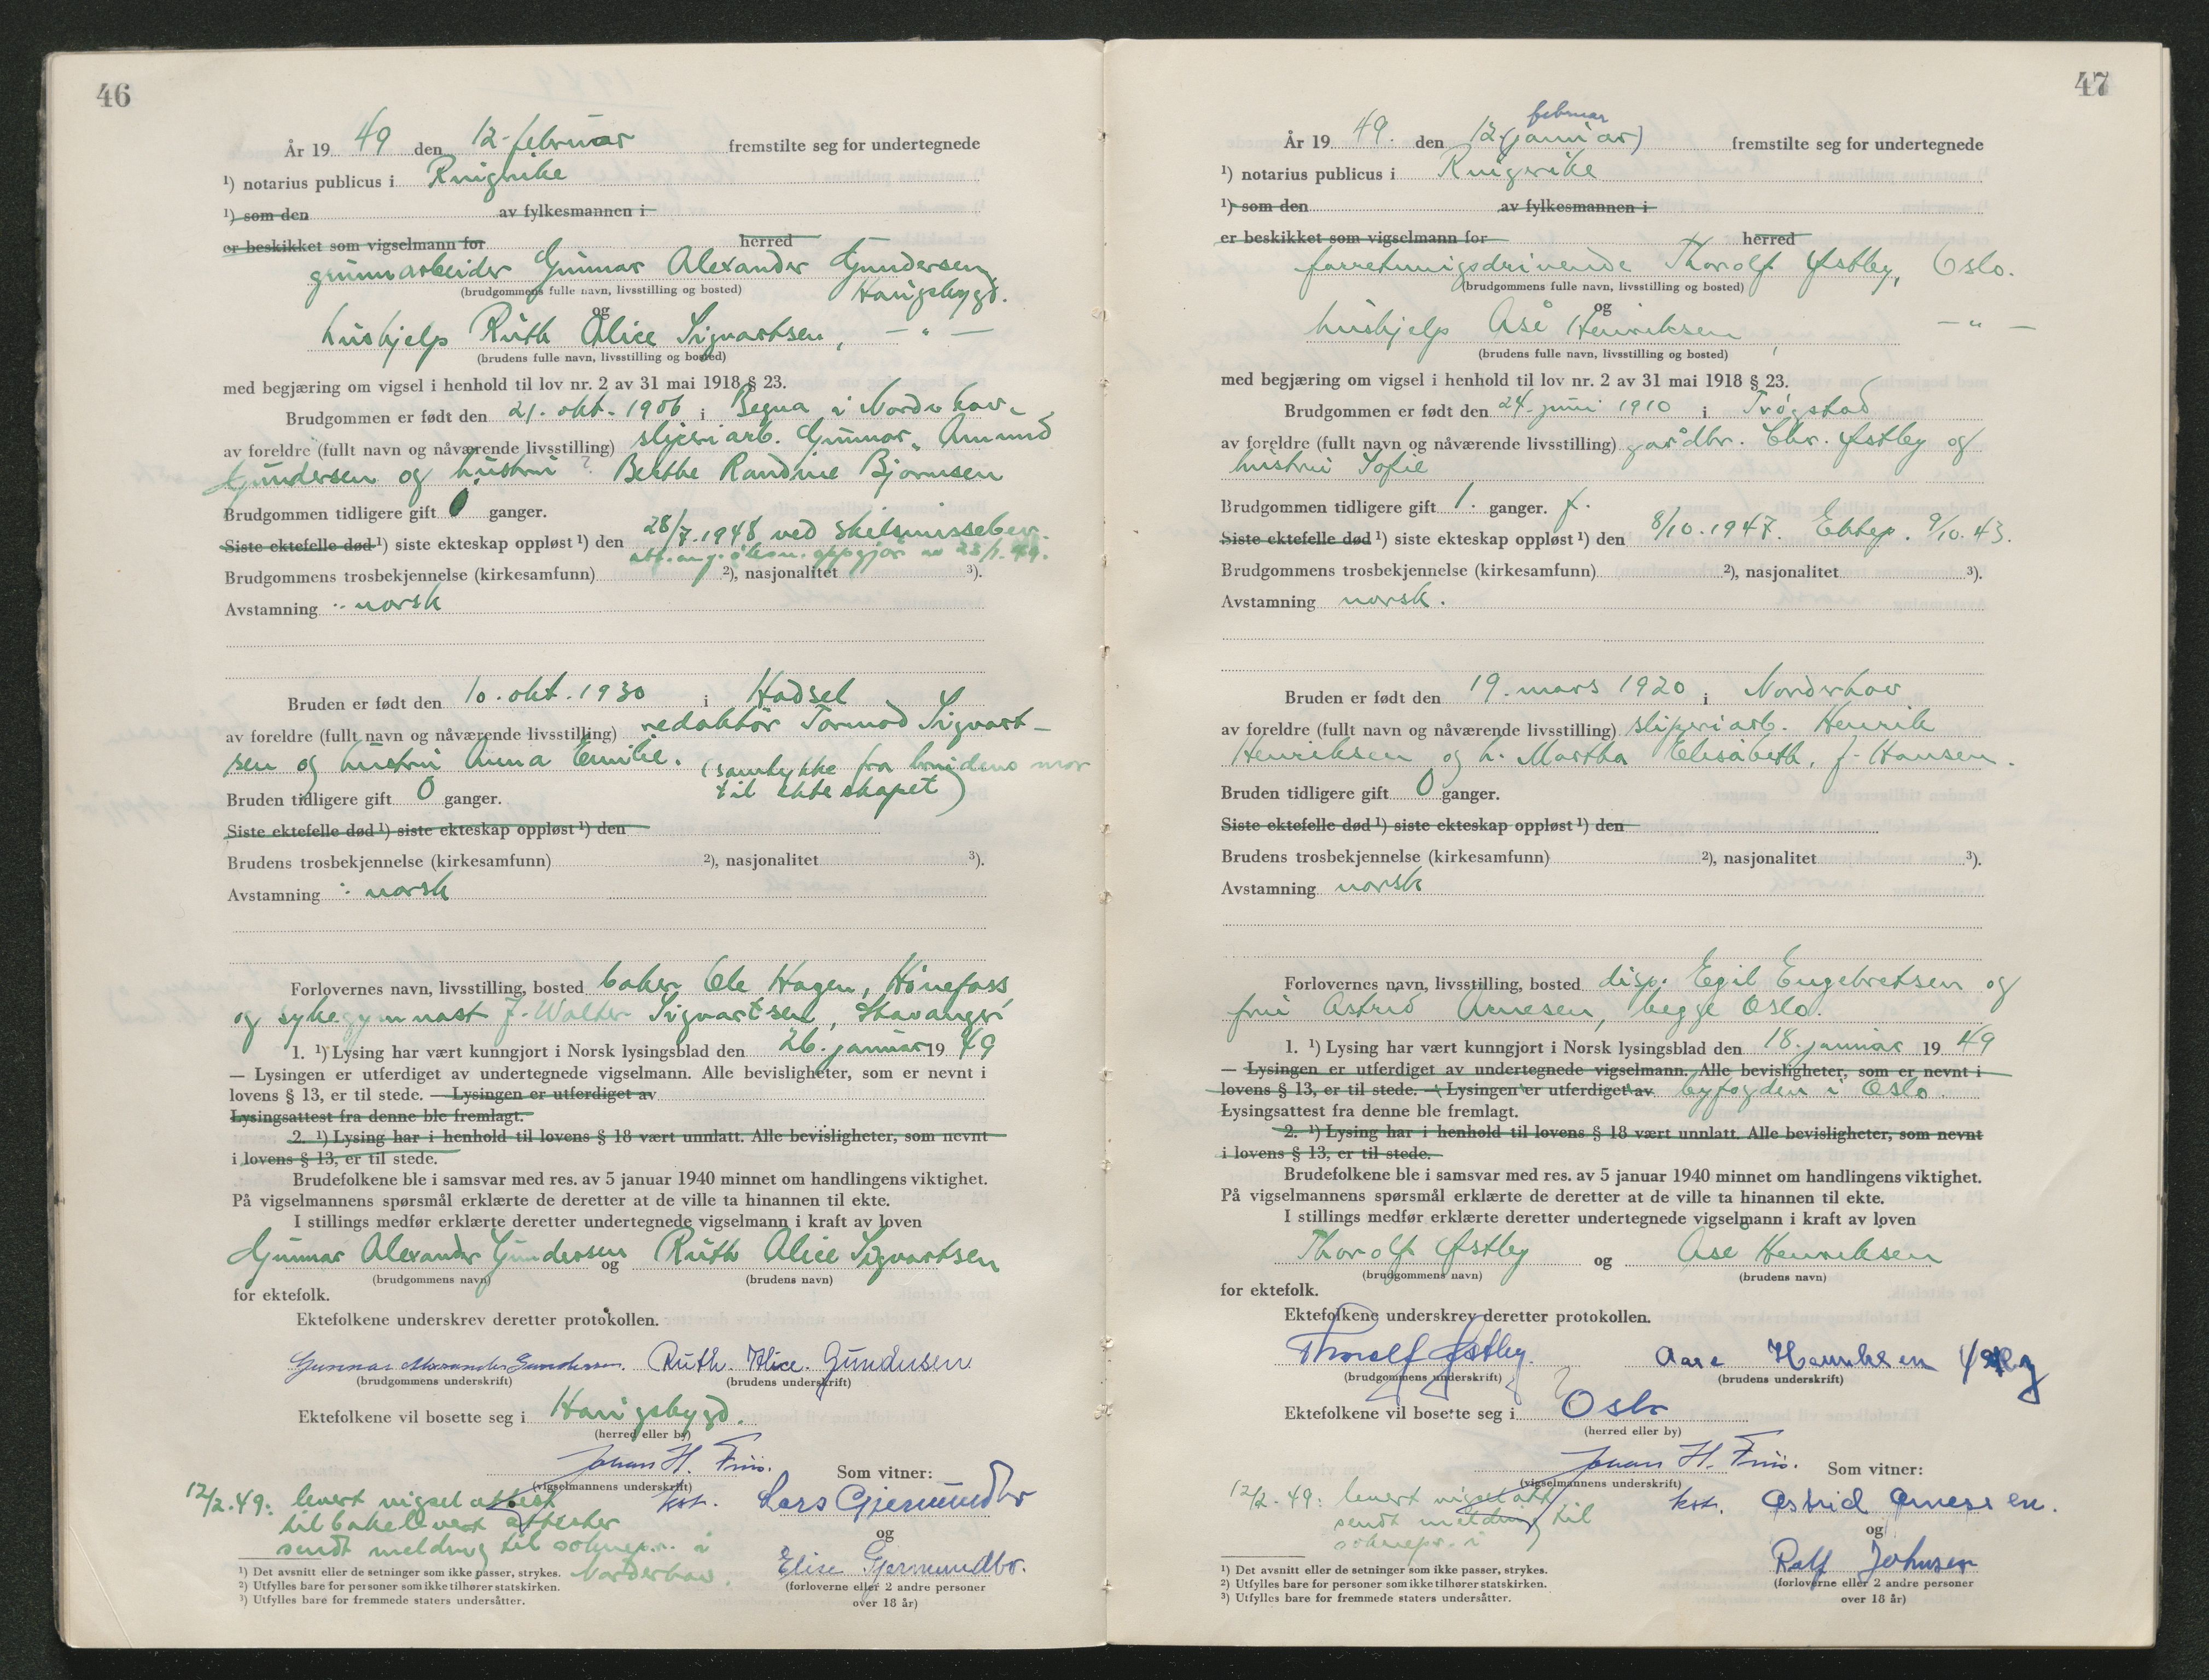 46
År 19 49 den 12. februar fremstilte seg for undertegnede
¹) notarius publicus i Ringerike
¹) som den av fylkesmannen i
er beskikket som vigselmann for herred
grunnarbeider Gunnar Alexander Gundersen,
(brudgommens fulle navn, livsstilling og bosted) Haugsbygd.
og
hushjelp Ruth Alice Sigvartsen, — " —
(brudens fulle navn, livsstilling og bosted)
med begjæring om vigsel i henhold til lov nr. 2 av 31 mai 1918 § 23.
Brudgommen er født den 21. okt. 1906 i Begna i Norderhov
av foreldre (fullt navn og nåværende livsstilling) sliperiarb. Gunnar Amund
Gundersen og hustru ? Berthe Randine Bjørnsen
Brudgommen tidligere gift 0 ganger.
Siste ektefelle død ¹) siste ekteskap oppløst ¹) den 28/7. 1948 ved skilsmissebev.
att. ang. økon. oppgjør av 25/1. 49.
Brudgommens trosbekjennelse (kirkesamfunn) ²), nasjonalitet ³).
Avstamning : norsk
Bruden er født den 10. okt. 1930 i Hadsel
av foreldre (fullt navn og nåværende livsstilling) redaktör Tormod Sigvart-
sen og hustru Anna Emilie. (samtykke fra brudens mor
til ekteskapet)
Bruden tidligere gift 0 ganger.
Siste ektefelle død ¹) siste ekteskap oppløst ¹) den
Brudens trosbekjennelse (kirkesamfunn) ²), nasjonalitet ³).
Avstamning : norsk
Forlovernes navn, livsstilling, bosted baker Ole Hagen, Hönefoss
og sykegymnast J. Walter Sigvartsen, Stavanger
1. ¹) Lysing har vært kunngjort i Norsk lysingsblad den 26. januar 19 49
— Lysingen er utferdiget av undertegnede vigselmann. Alle bevisligheter, som er nevnt i
lovens § 13, er til stede. — Lysingen er utferdiget av
Lysingsattest fra denne ble fremlagt.
2. ¹) Lysing har i henhold til lovens § 18 vært unnlatt. Alle bevisligheter, som nevnt
i lovens § 13, er til stede.
Brudefolkene ble i samsvar med res. av 5 januar 1940 minnet om handlingens viktighet.
På vigselmannens spørsmål erklærte de deretter at de ville ta hinannen til ekte.
I stillings medfør erklærte deretter undertegnede vigselmann i kraft av loven
Gunnar Alexander Gundersen og Ruth Alice Sigvartsen
(brudgommens navn) (brudens navn)
for ektefolk.
Ektefolkene underskrev deretter protokollen.
Gunnar Alexander Gundersen. Ruth. Alice. Gundersen
(brudgommens underskrift) (brudens underskrift)
Ektefolkene vil bosette seg i Haugsbygd.
(herred eller by)
Johan H. Som vitner:
(vigselmannens underskrift)
12/2. 49: levert vigselattest kst. Lars Gjermundbo
tilbakelevert attester og
sendt melding til soknepr. i Elise Gjermundbo.
Norderhov.
(forloverne eller 2 andre personer
over 18 år)
¹) Det avsnitt eller de setninger som ikke passer, strykes.
²) Utfylles bare for personer som ikke tilhører statskirken.
³) Utfylles bare for fremmede staters undersåtter.
47
februar
År 19 49. den 12. (januar) fremstilte seg for undertegnede
¹) notarius publicus i Ringerike
¹) som den av fylkesmannen i
er beskikket som vigselmann for herred
forretningsdrivende Thorolf Østby, Oslo.
(brudgommens fulle navn, livsstilling og bosted)
og
hushjelp Åse Henriksen, — " —
(brudens fulle navn, livsstilling og bosted)
med begjæring om vigsel i henhold til lov nr. 2 av 31 mai 1918 § 23.
Brudgommen er født den 24. juni 1910 i Trøgstad
av foreldre (fullt navn og nåværende livsstilling) gårdbr. Chr. Østby og
hustru Sofie
Brudgommen tidligere gift 1. ganger. f.
Siste ektefelle død ¹) siste ekteskap oppløst ¹) den 8/10. 1947. Ektep. 9/10. 43.
Brudgommens trosbekjennelse (kirkesamfunn) ²), nasjonalitet ³).
Avstamning norsk.
Bruden er født den 19. mars 1920 i Norderhov
av foreldre (fullt navn og nåværende livsstilling) sliperiarb. Henrik
Henriksen og h. Martha Elisabeth, f. Hansen.
Bruden tidligere gift 0 ganger.
Siste ektefelle død ¹) siste ekteskap oppløst ¹) den
Brudens trosbekjennelse (kirkesamfunn) ²), nasjonalitet ³).
Avstamning norsk
Forlovernes navn, livsstilling, bosted disp. Egil Engebretsen og
fru Astrid Arnesen, begge Oslo.
1. ¹) Lysing har vært kunngjort i Norsk lysingsblad den 18. januar 19 49
— Lysingen er utferdiget av undertegnede vigselmann. Alle bevisligheter, som er nevnt i
lovens § 13, er til stede. — Lysingen er utferdiget av byfogden i Oslo.
Lysingsattest fra denne ble fremlagt.
2. ¹) Lysing har i henhold til lovens § 18 vært unnlatt. Alle bevisligheter, som nevnt
i lovens § 13, er til stede.
Brudefolkene ble i samsvar med res. av 5 januar 1940 minnet om handlingens viktighet.
På vigselmannens spørsmål erklærte de deretter at de ville ta hinannen til ekte.
I stillings medfør erklærte deretter undertegnede vigselmann i kraft av loven
Thorolf Østby og Åse Henriksen
(brudgommens navn) (brudens navn)
for ektefolk.
Ektefolkene underskrev deretter protokollen.
Thorolf Østby. Aase Henriksen Østby
(brudgommens underskrift) (brudens underskrift)
Ektefolkene vil bosette seg i Oslo
(herred eller by)
Johan H. Som vitner:
(vigselmannens underskrift)
12/2. 49: levert vigselatt. kst. Astrid Arnessen.
sendt melding til og
soknepr. i Ralf Johnsen
(forloverne eller 2 andre personer
over 18 år)
¹) Det avsnitt eller de setninger som ikke passer, strykes.
²) Utfylles bare for personer som ikke tilhører statskirken.
³) Utfylles bare for fremmede staters undersåtter.